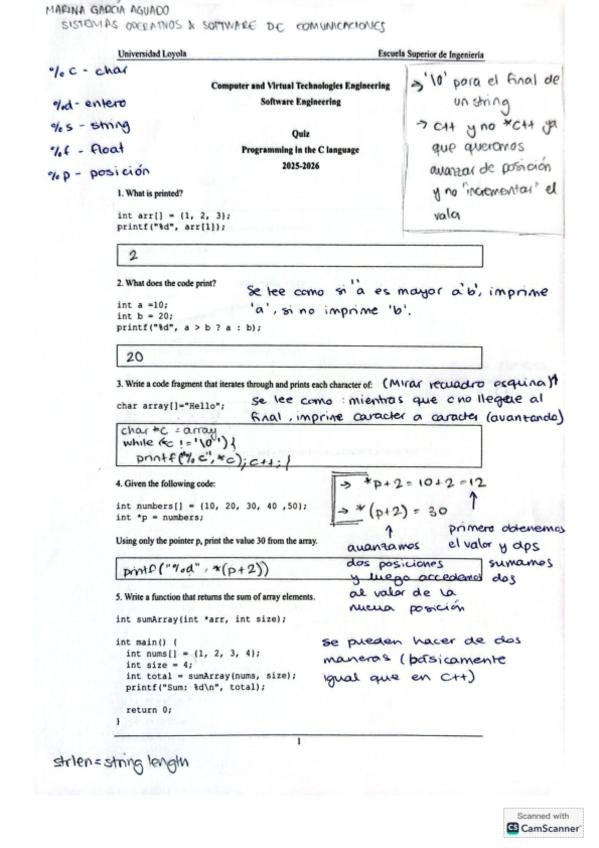 MARINA GARCÍA AGUADO
SISTEMAS OPERATIVOS & SOFTWARE DE COMUNICACIONES
Universidad Loyola Escuela Superior de Ingeniería
%c - char
%d - entero
%s - string
%f - float
%p - posición
Computer and Virtual Technologies Engineering
Software Engineering
Quiz
Programming in the C language
2025-2026
→ '\0' para el final de
un string
→ c++ y no *c++ ya
que queremos
avanzar de posición
y no "incrementar" el
valor
1. What is printed?
int arr[] = {1, 2, 3};
printf("%d", arr[1]);
2
2. What does the code print?
int a =10;
int b = 20;
printf("%d", a > b ? a : b);
Se lee como si 'a' es mayor a 'b', imprime
'a', si no imprime 'b'.
20
3. Write a code fragment that iterates through and prints each character of:
(Mirar recuadro esquina)
char array[]="Hello";
Se lee como: mientras que c no llegue al
final, imprime caracter a caracter (avanzando)
char *c = array
while (*c != '\0') {
printf("%c", *c); c++; }
4. Given the following code:
int numbers[] = {10, 20, 30, 40 ,50};
int *p = numbers;
→ *p+2 = 10+2 = 12
→ *(p+2) = 30
primero obtenemos
el valor y dps
sumamos
dos
avanzamos
dos posiciones
y luego accedemos
al valor de la
nueva posición
Using only the pointer p, print the value 30 from the array.
printf("%d", *(p+2))
5. Write a function that returns the sum of array elements.
int sumArray(int *arr, int size);
int main() {
int nums[] = {1, 2, 3, 4};
int size = 4;
int total = sumArray(nums, size);
printf("Sum: %d\n", total);
return 0;
}
se pueden hacer de dos
maneras (básicamente
igual que en C++)
1
strlen = string length
Scanned with
CS CamScanner